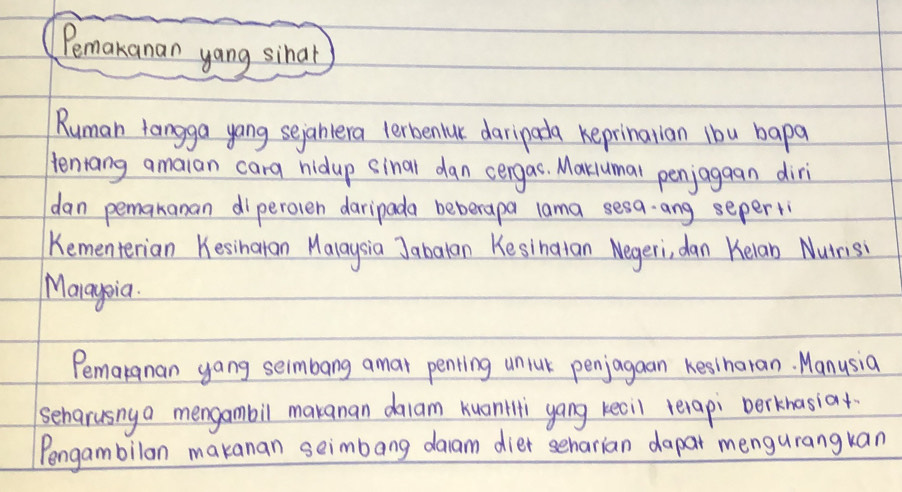 Pemakanan yang sihat
Rumah tangga yang sejahtera terbentuk daripada keprihatian ibu bapa
tentang amalan cara hidup sihat dan cergas. Maklumat penjagaan diri
dan pemakanan diperoleh daripada beberapa lama sesa-ang seperti
Kementerian Kesihatan Malaysia Jabatan Kesihatan Negeri, dan Kelab Nutrisi
Malaysia.
Pemakanan yang seimbang amat penting untuk penjagaan kesihatan. Manusia
seharusnya mengambil makanan dalam kuantiti yang kecil tetapi berkhasiat.
Pengambilan makanan seimbang dalam diet seharian dapat mengurangkan